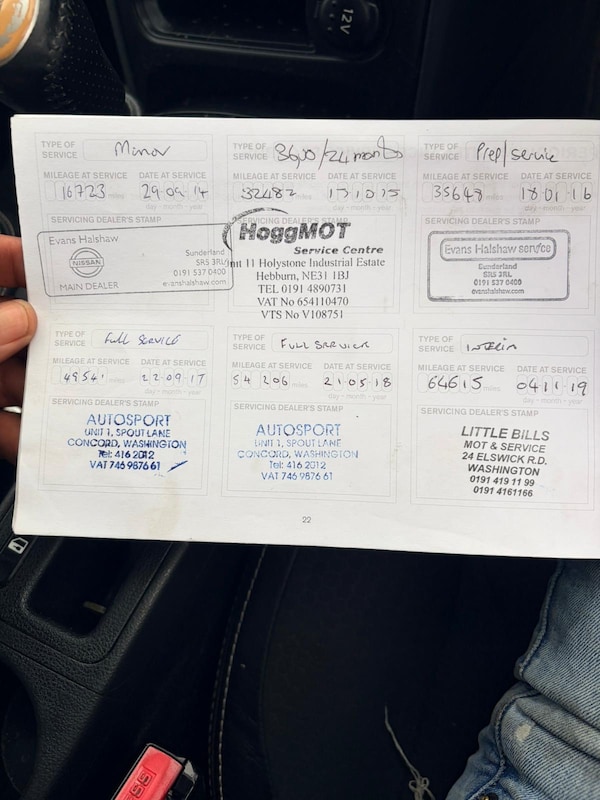 12V
TYPE OF SERVICE Minor
MILEAGE AT SERVICE DATE AT SERVICE
16723 miles 29·09·14
day - month - year
SERVICING DEALER'S STAMP
Evans Halshaw
NISSAN
MAIN DEALER
Sunderland
SR5 3RL
0191 537 0400
evanshalshaw.com
TYPE OF SERVICE
MILEAGE AT SERVICE DATE AT SERVICE
32482
day - month - year
SERVICING DEALER'S STAMP
HoggMOT
Service Centre
Unit 11 Holystone Industrial Estate
Hebburn, NE31 1BJ
TEL 0191 4890731
VAT No 654110470
VTS No V108751
TYPE OF SERVICE Prep/Service
MILEAGE AT SERVICE DATE AT SERVICE
35648 miles 18·01·16
day - month - year
SERVICING DEALER'S STAMP
Evans Halshaw service
Sunderland
SR5 3RL
0191 537 0400
evanshalshaw.com
TYPE OF SERVICE Full Service
MILEAGE AT SERVICE DATE AT SERVICE
49541 miles 22·09·17
day - month - year
SERVICING DEALER'S STAMP
AUTOSPORT
UNIT 1, SPOUT LANE
CONCORD, WASHINGTON
Tel: 416 2012
VAT 746 9876 61
TYPE OF SERVICE FULL SERVICE
MILEAGE AT SERVICE DATE AT SERVICE
54206 miles 21·05·18
day - month - year
SERVICING DEALER'S STAMP
AUTOSPORT
UNIT 1, SPOUT LANE
CONCORD, WASHINGTON
Tel: 416 2012
VAT 746 9876 61
TYPE OF SERVICE INTERIM
MILEAGE AT SERVICE DATE AT SERVICE
64615 miles 04·11·19
day - month - year
SERVICING DEALER'S STAMP
LITTLE BILLS
MOT & SERVICE
24 ELSWICK R.D.
WASHINGTON
0191 419 11 99
0191 4161166
22